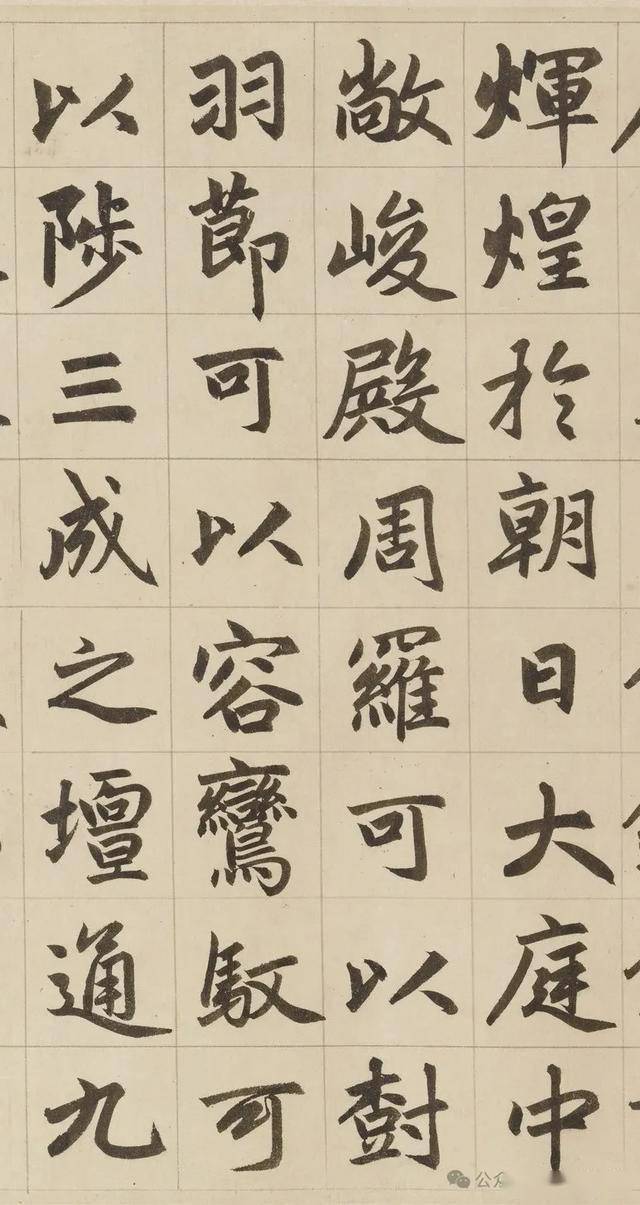 輝煌於朝日大庭中
敞峻殿周羅可以樹
羽節可以容鸞馭可
以陟三成之壇通九
公众